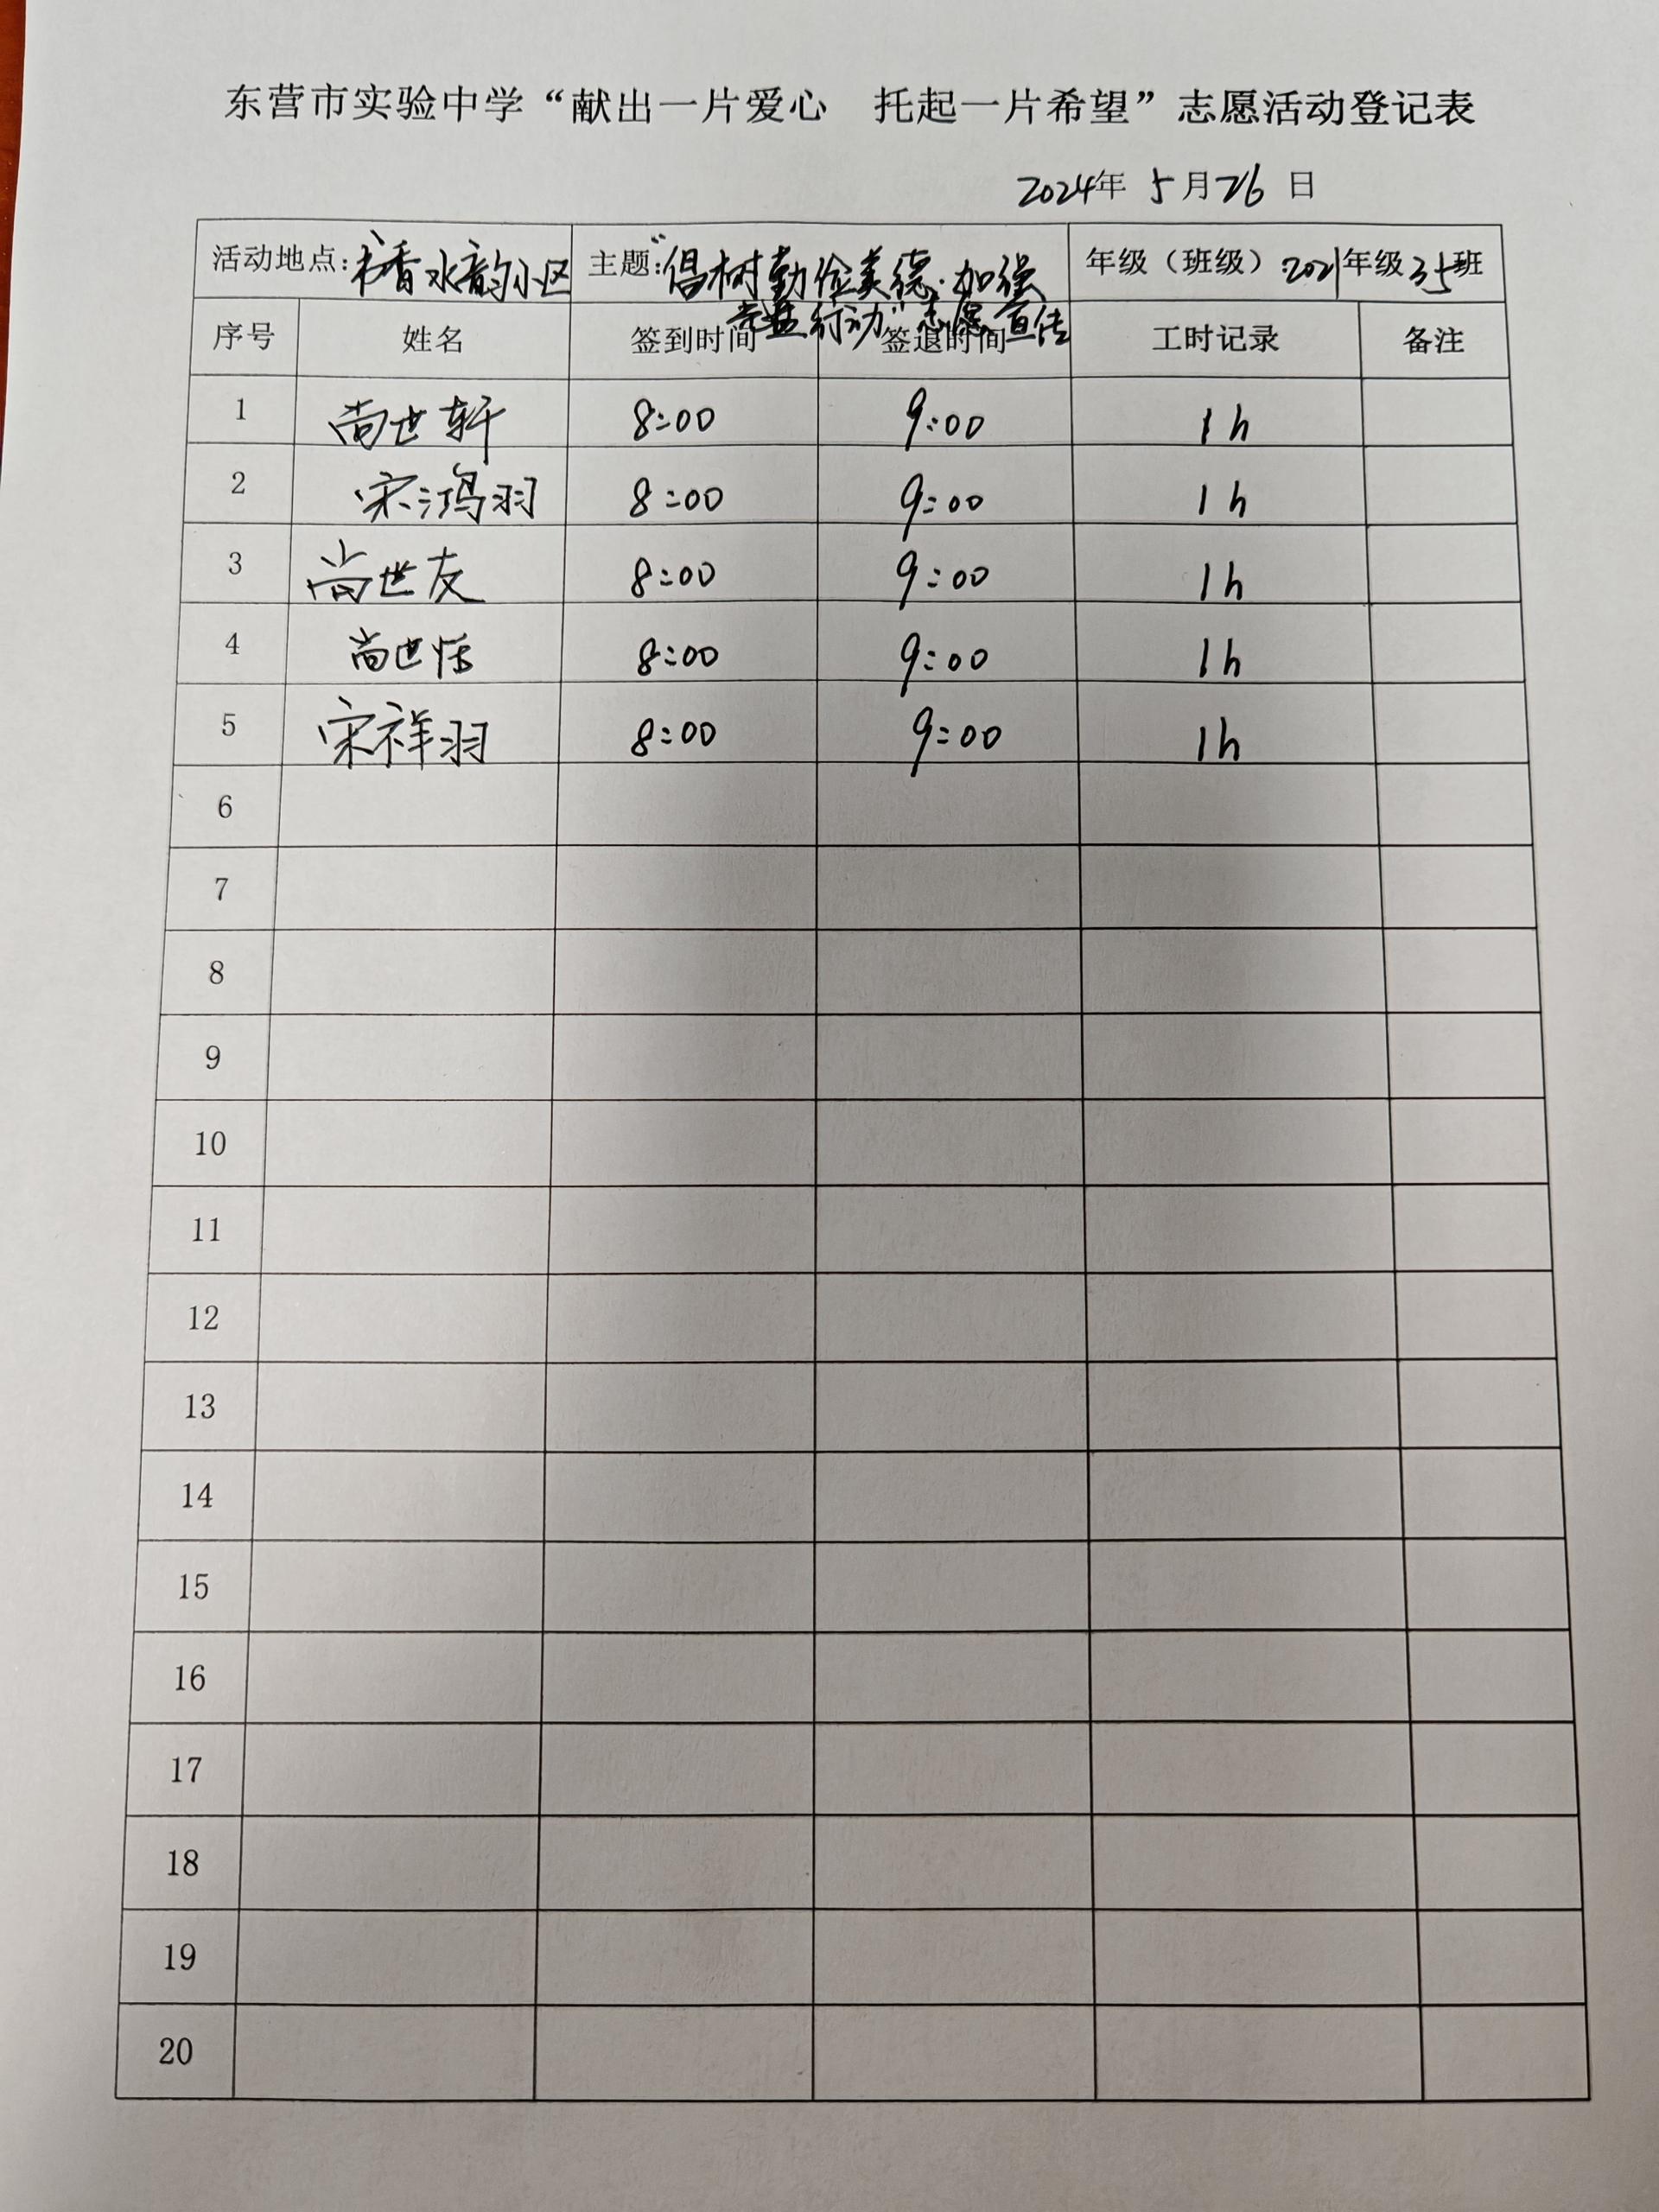 东营市实验中学“献出一片爱心 托起一片希望”志愿活动登记表
2024年 5月26日
活动地点:书香水韵小区 主题:“倡树勤俭美德·加强 年级（班级）2021年级35班
光盘行动”志愿宣传
序号 姓名 签到时间 签退时间 工时记录 备注
1 尚世轩 8:00 9:00 1h
2 宋鸿羽 8:00 9:00 1h
3 尚世友 8:00 9:00 1h
4 尚世恬 8:00 9:00 1h
5 宋祥羽 8:00 9:00 1h
6
7
8
9
10
11
12
13
14
15
16
17
18
19
20